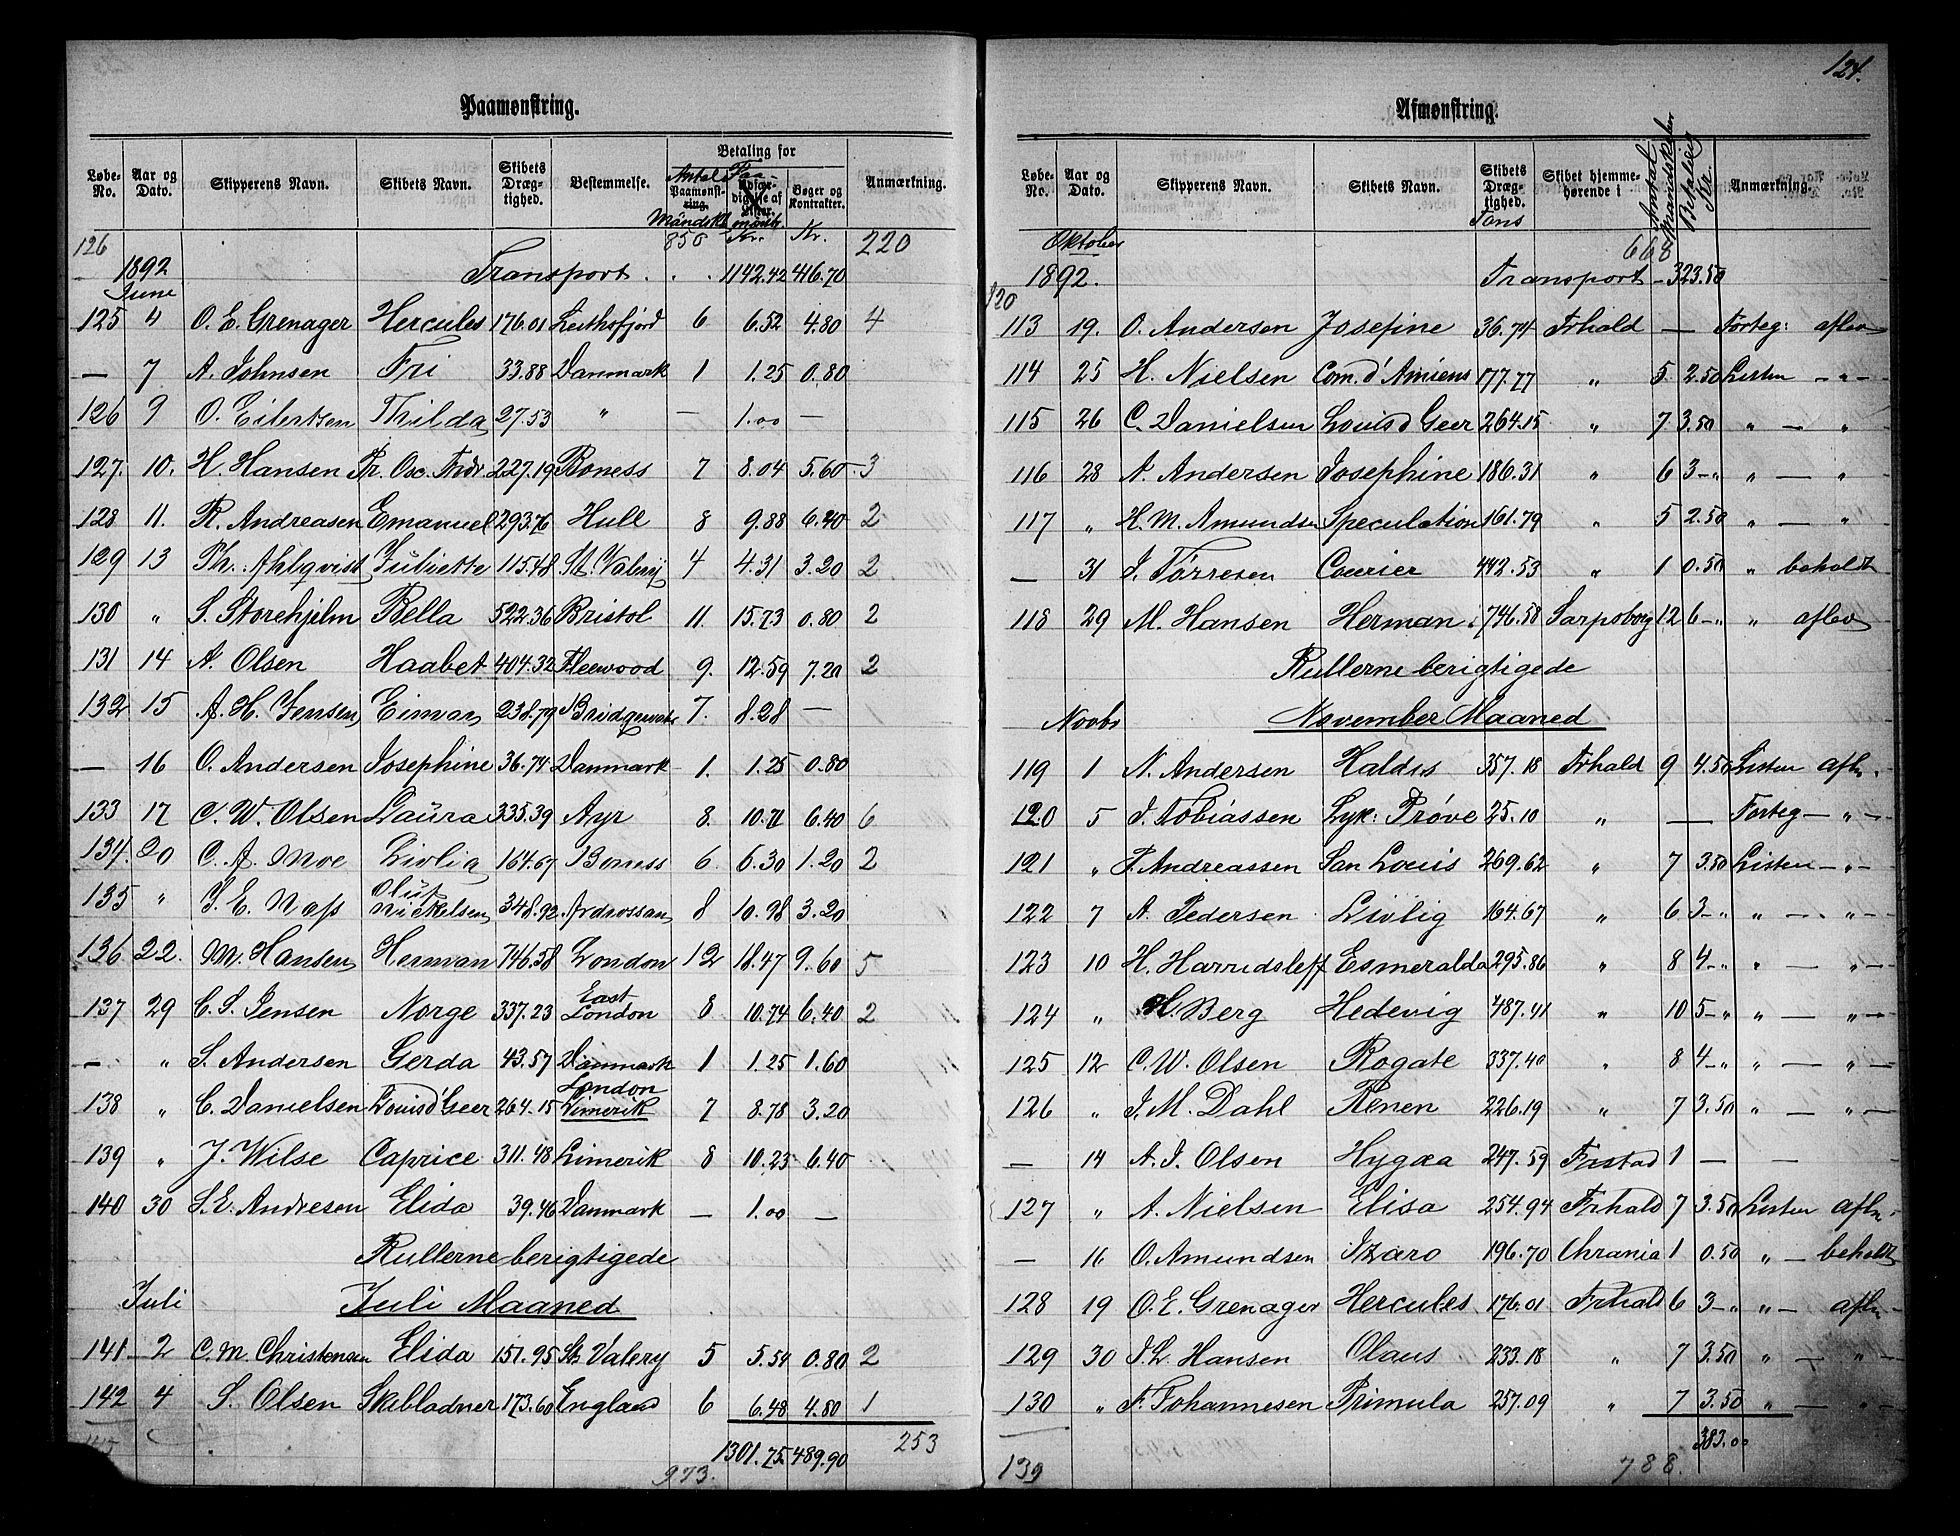 124.
Paamønstring.
Løbe-No. Aar og Dato. Skipperens Navn. Skibets Navn. Skibets Drægtighed. Bestemmelse. Betaling for Anmærkning.
Antal Paamønstring. Mandsk. Bøger og Kontrakter.
126 850 Kr. Kr. 220
1892 Transport . . 1142.42 416.70
June
125 4 O. E. Grenager Hercules 176.01 Leithsfjord 6 6.52 4.80 4
— 7 A. Johnsen Fri 33.88 Danmark 1 1.25 0.80
126 9 O. Eilertsen Thilda 27.53 " — 1.00 —
127. 10. H. Hansen Pr. Osc. Fredr. 227.19 Boness 7 8.04 5.60 3
128 11. R. Andreasen Emanuel 293.76 Hull 8 9.88 6.40 2
129 13 Th. Ahlqvist Juliette 115.48 St. Valery 4 4.31 3.20 2
130 " S. Storehjelm Bella 522.36 Bristol 11. 15.73 0.80 2
131 14 A. Olsen Haabet 404.32 Fleewood 9. 12.59 7.20 2
132 15 A. H. Jensen Eimar 238.79 Bridgewate 7. 8.28 —
— 16 O. Andersen Josephine 36.74 Danmark 1. 1.25 0.80
133 17 C. W. Olsen Laura 335.39 Ayr 8. 10.71 6.40 6
134. 20 C. A. Moe Livlig 164.67 Boness 6. 6.30 1.20 2
135 " J. E. Nass Oluf Nickelsen 348.92 Ardrossan 8 10.98 3.20
136 22. M. Hansen Herman 746.58 London 12 18.47 9.60 5
137 29 C. S. Jensen Norge 337.23 East London 8 10.74 6.40 2
— " S. Andersen Gerda 43.57 Danmark 1 1.25 1.60
138 " C. Danielsen Louis d'Geer 264.15 London Limerik 7 8.78 3.20
139 " J. Wilse Caprice 311.48 Limerik 8 10.23 6.40
140 30 S. E. Andresen Elida 39.46 Danmark — 1.00 —
Rullerne berigtigede
Juli Juli Maaned
141 2 C. M. Christensen Elida 151.95 St. Valery 5 5.54 0.80 2
142 4 S. Olsen Skibladner 173.60 England 6 6.48 4.80 1
1301.75 489.90 253
973.
Afmønstring.
Løbe-No. Aar og Dato. Skipperens Navn. Skibets Navn. Skibets Drægtighed. Tons Skibet hjemmehørende i Antal Mandskaber Betaling Kr. Anmærkning.
Oktober 668
1892. Transport — 323.50
120
113 19. O. Andersen Josefine 36.74 Frhald — Forteg: aflev
114 25 H. Nielsen Com. d'Amiens 177.77 " 5 2.50 Listen — " —
115 26 C. Danielsen Louis d Geer 264.15 " 7 3.50 " — "
116 28 A. Andersen Josephine 186.31 " 6 3 — " " — "
117 " H. M. Amundsen Speculation 161.79 " 5 2.50 " — "
— 31 J. Tørresen Courier 442.53 " 1 0.50 " beholdt
118 29 M. Hansen Herman 746.58 Sarpsborg 12 6 — " " aflev
Rullerne berigtigede
Novbr November Maaned
119 1 N. Andersen Haldis 357.18 Frhald 9 4.50 Listen afl.
120 5 J. Tobiassen Lyk: Prøve 25.10 " — Forteg — " —
121 " P. Andreassen San Louis 269.62 " 7 3.50 Listen — " —
122 7 A. Pedersen Livlig 164.67 " 6 3 — " " — " —
123 10 H. Harridsleff Esmeralda 295.86 " 8 4 — " " — " —
124 " H. Berg Hedevig 487.41 " 10 5 — " " — " —
125 12 C. W. Olsen Rogate 337.40 " 8 4 — " " — " —
126 " J. M. Dahl Renen 226.19 " 7 3.50 " — " —
— 14 A. J. Olsen Hygæa 247.59 Frstad 1 — —
127 " A. Nielsen Elisa 254.94 Frhald 7 3.50 Listen afl.
— 16 O. Amundsen Izaro 196.70 Chrania 1 0.50 " — beholdt
128 19 O. E. Grenager Hercules 176.01 Frhald 6 3 — " " — afl.
129 30 J. L. Hansen Olaus 233.18 " 7 3.50 " — " —
130 " F. Johannesen Primula 257.09 " 7 3.50 " — " —
383.00
139 788.